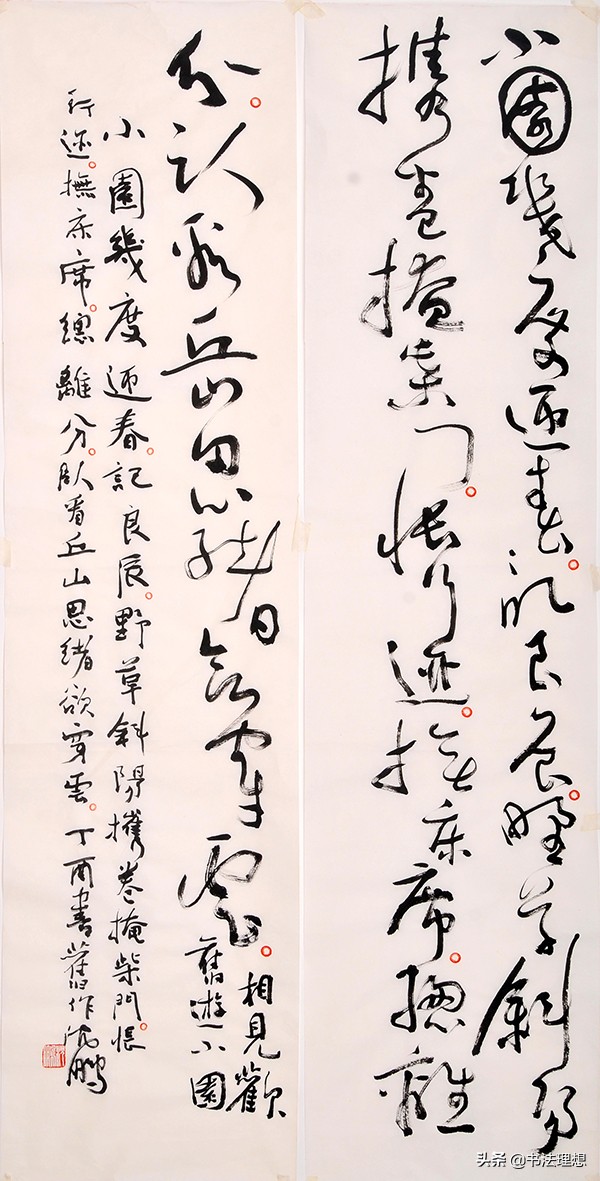 小園幾度迎春。記良辰。野草斜陽
攜卷掩柴門。悵行迹。撫床席。總離
分。臥看丘山思緒欲穿雲。
相見歡
舊遊小園
小園幾度迎春。記良辰。野草斜陽攜卷掩柴門。悵
行迹。撫床席。總離分。臥看丘山思緒欲穿雲。丁酉書舊作沈鵬
头条 @书法理想